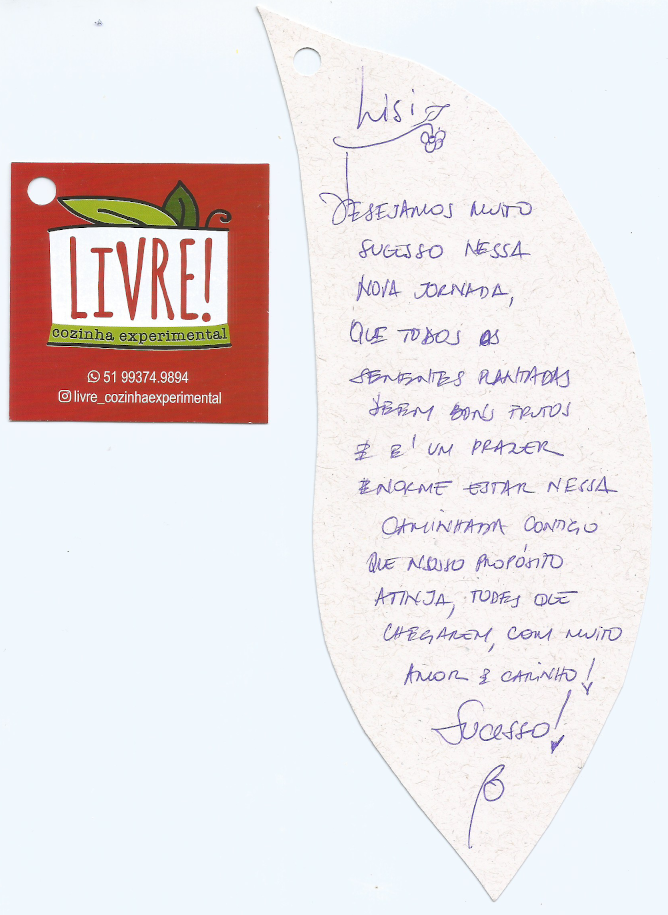 LIVRE!
cozinha experimental
51 99374.9894
livre_cozinhaexperimental
Lisi
DESEJAMOS MUITO
SUCESSO NESSA
NOVA JORNADA,
QUE TODOS AS
SEMENTES PLANTADAS
DEEM BONS FRUTOS
E E' UM PRAZER
ENORME ESTAR NESSA
CAMINHADA CONTIGO
QUE NOSSO PROPÓSITO
ATINJA, TODES QUE
CHEGAREM, COM MUITO
AMOR E CARINHO!
Sucesso!